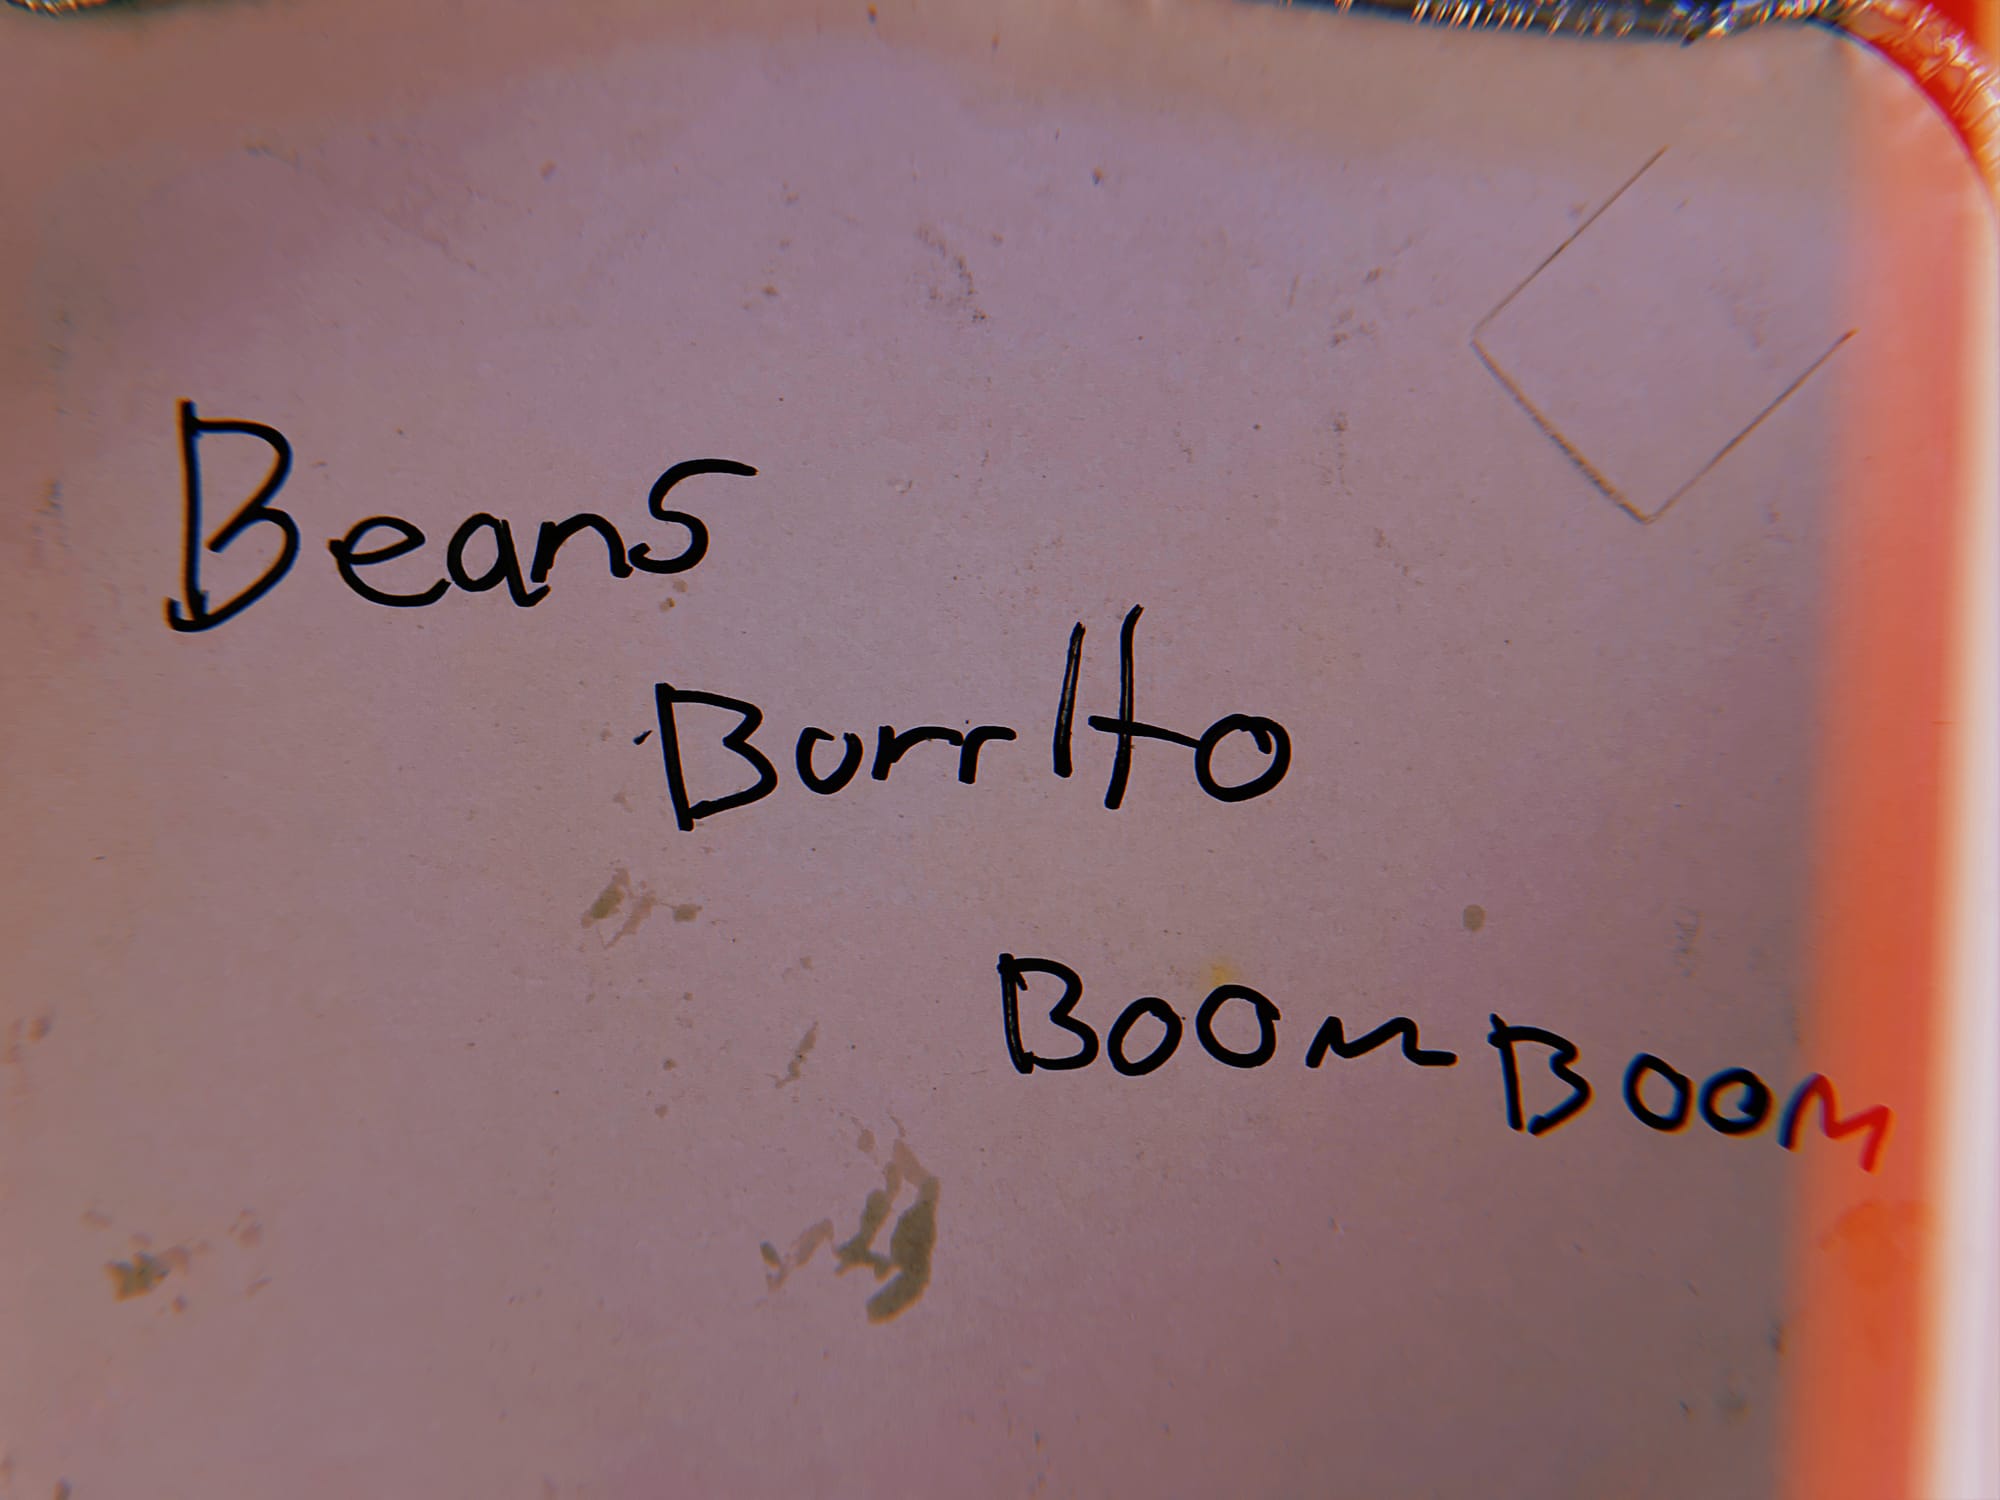 Beans
Burrito
Boom Boom